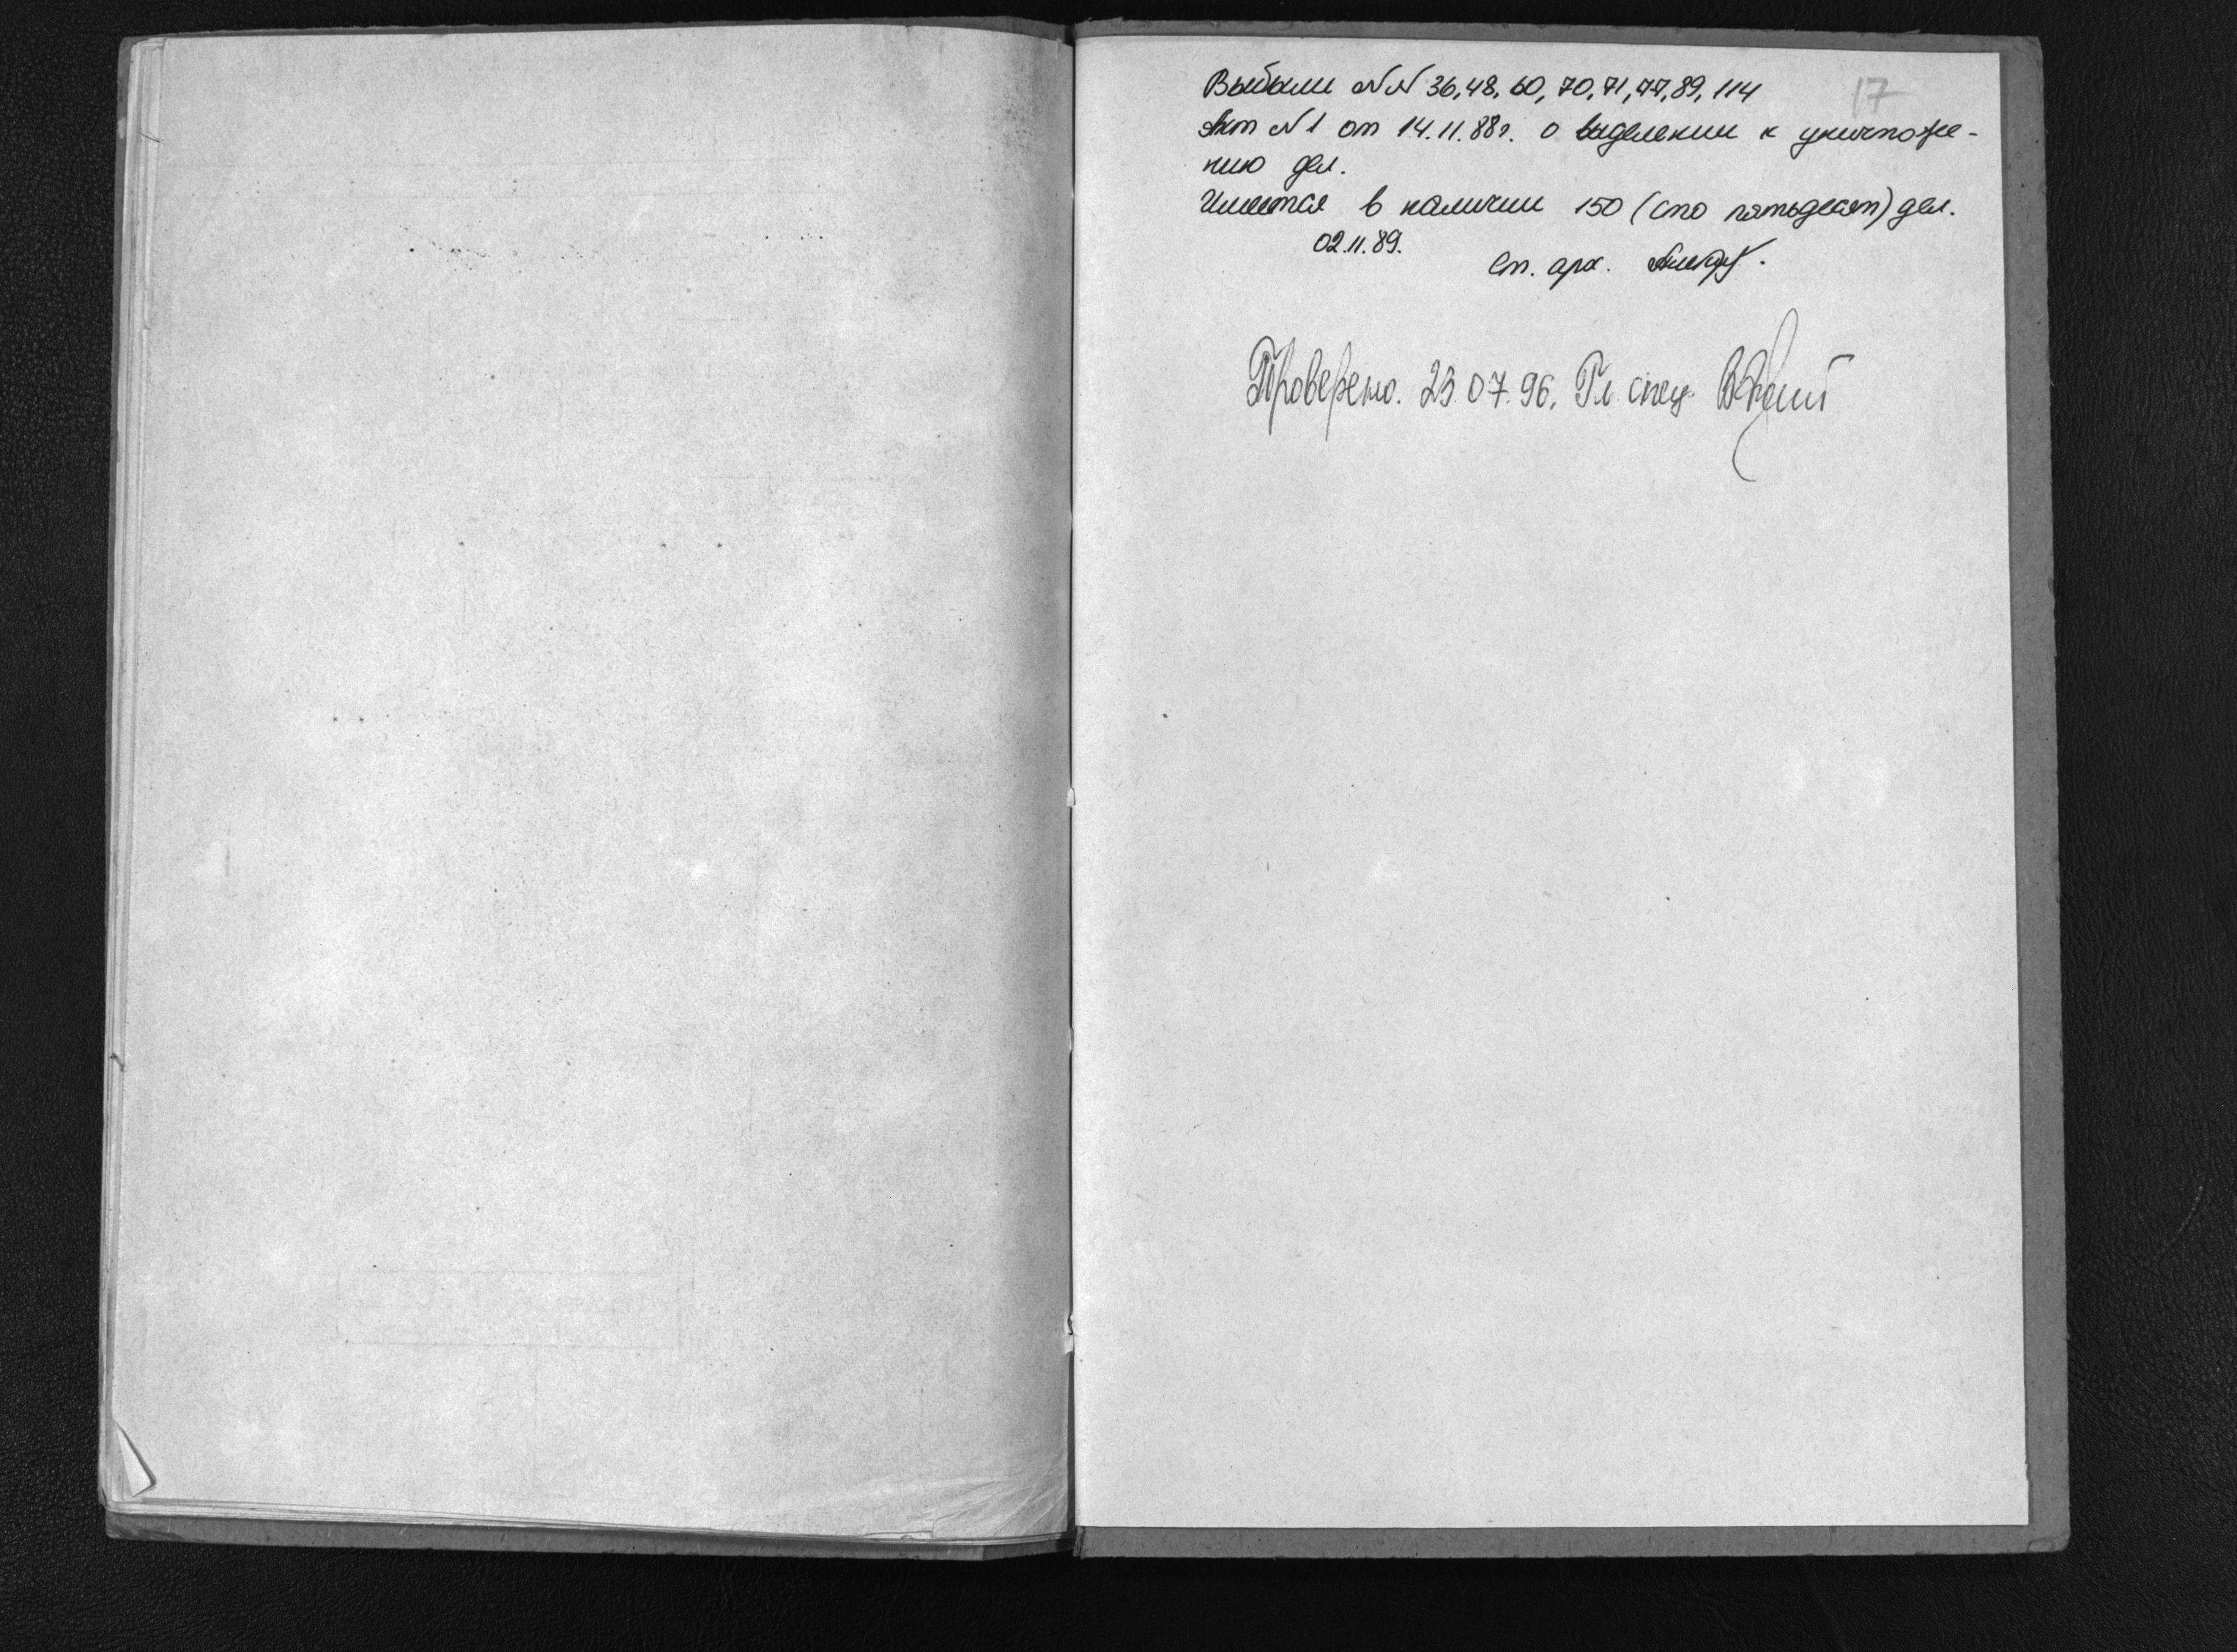 17
Выбыли №№ 36, 48, 60, 70, 71, 77, 89, 114
Акт №1 от 14.11.88г. о выделении к уничтоже-
нию дел.
Имеется в наличии 150 (сто пятьдесят) дел.
02.11.89.
Ст. арх.
Проверено. 23.07.96. Гл спец.